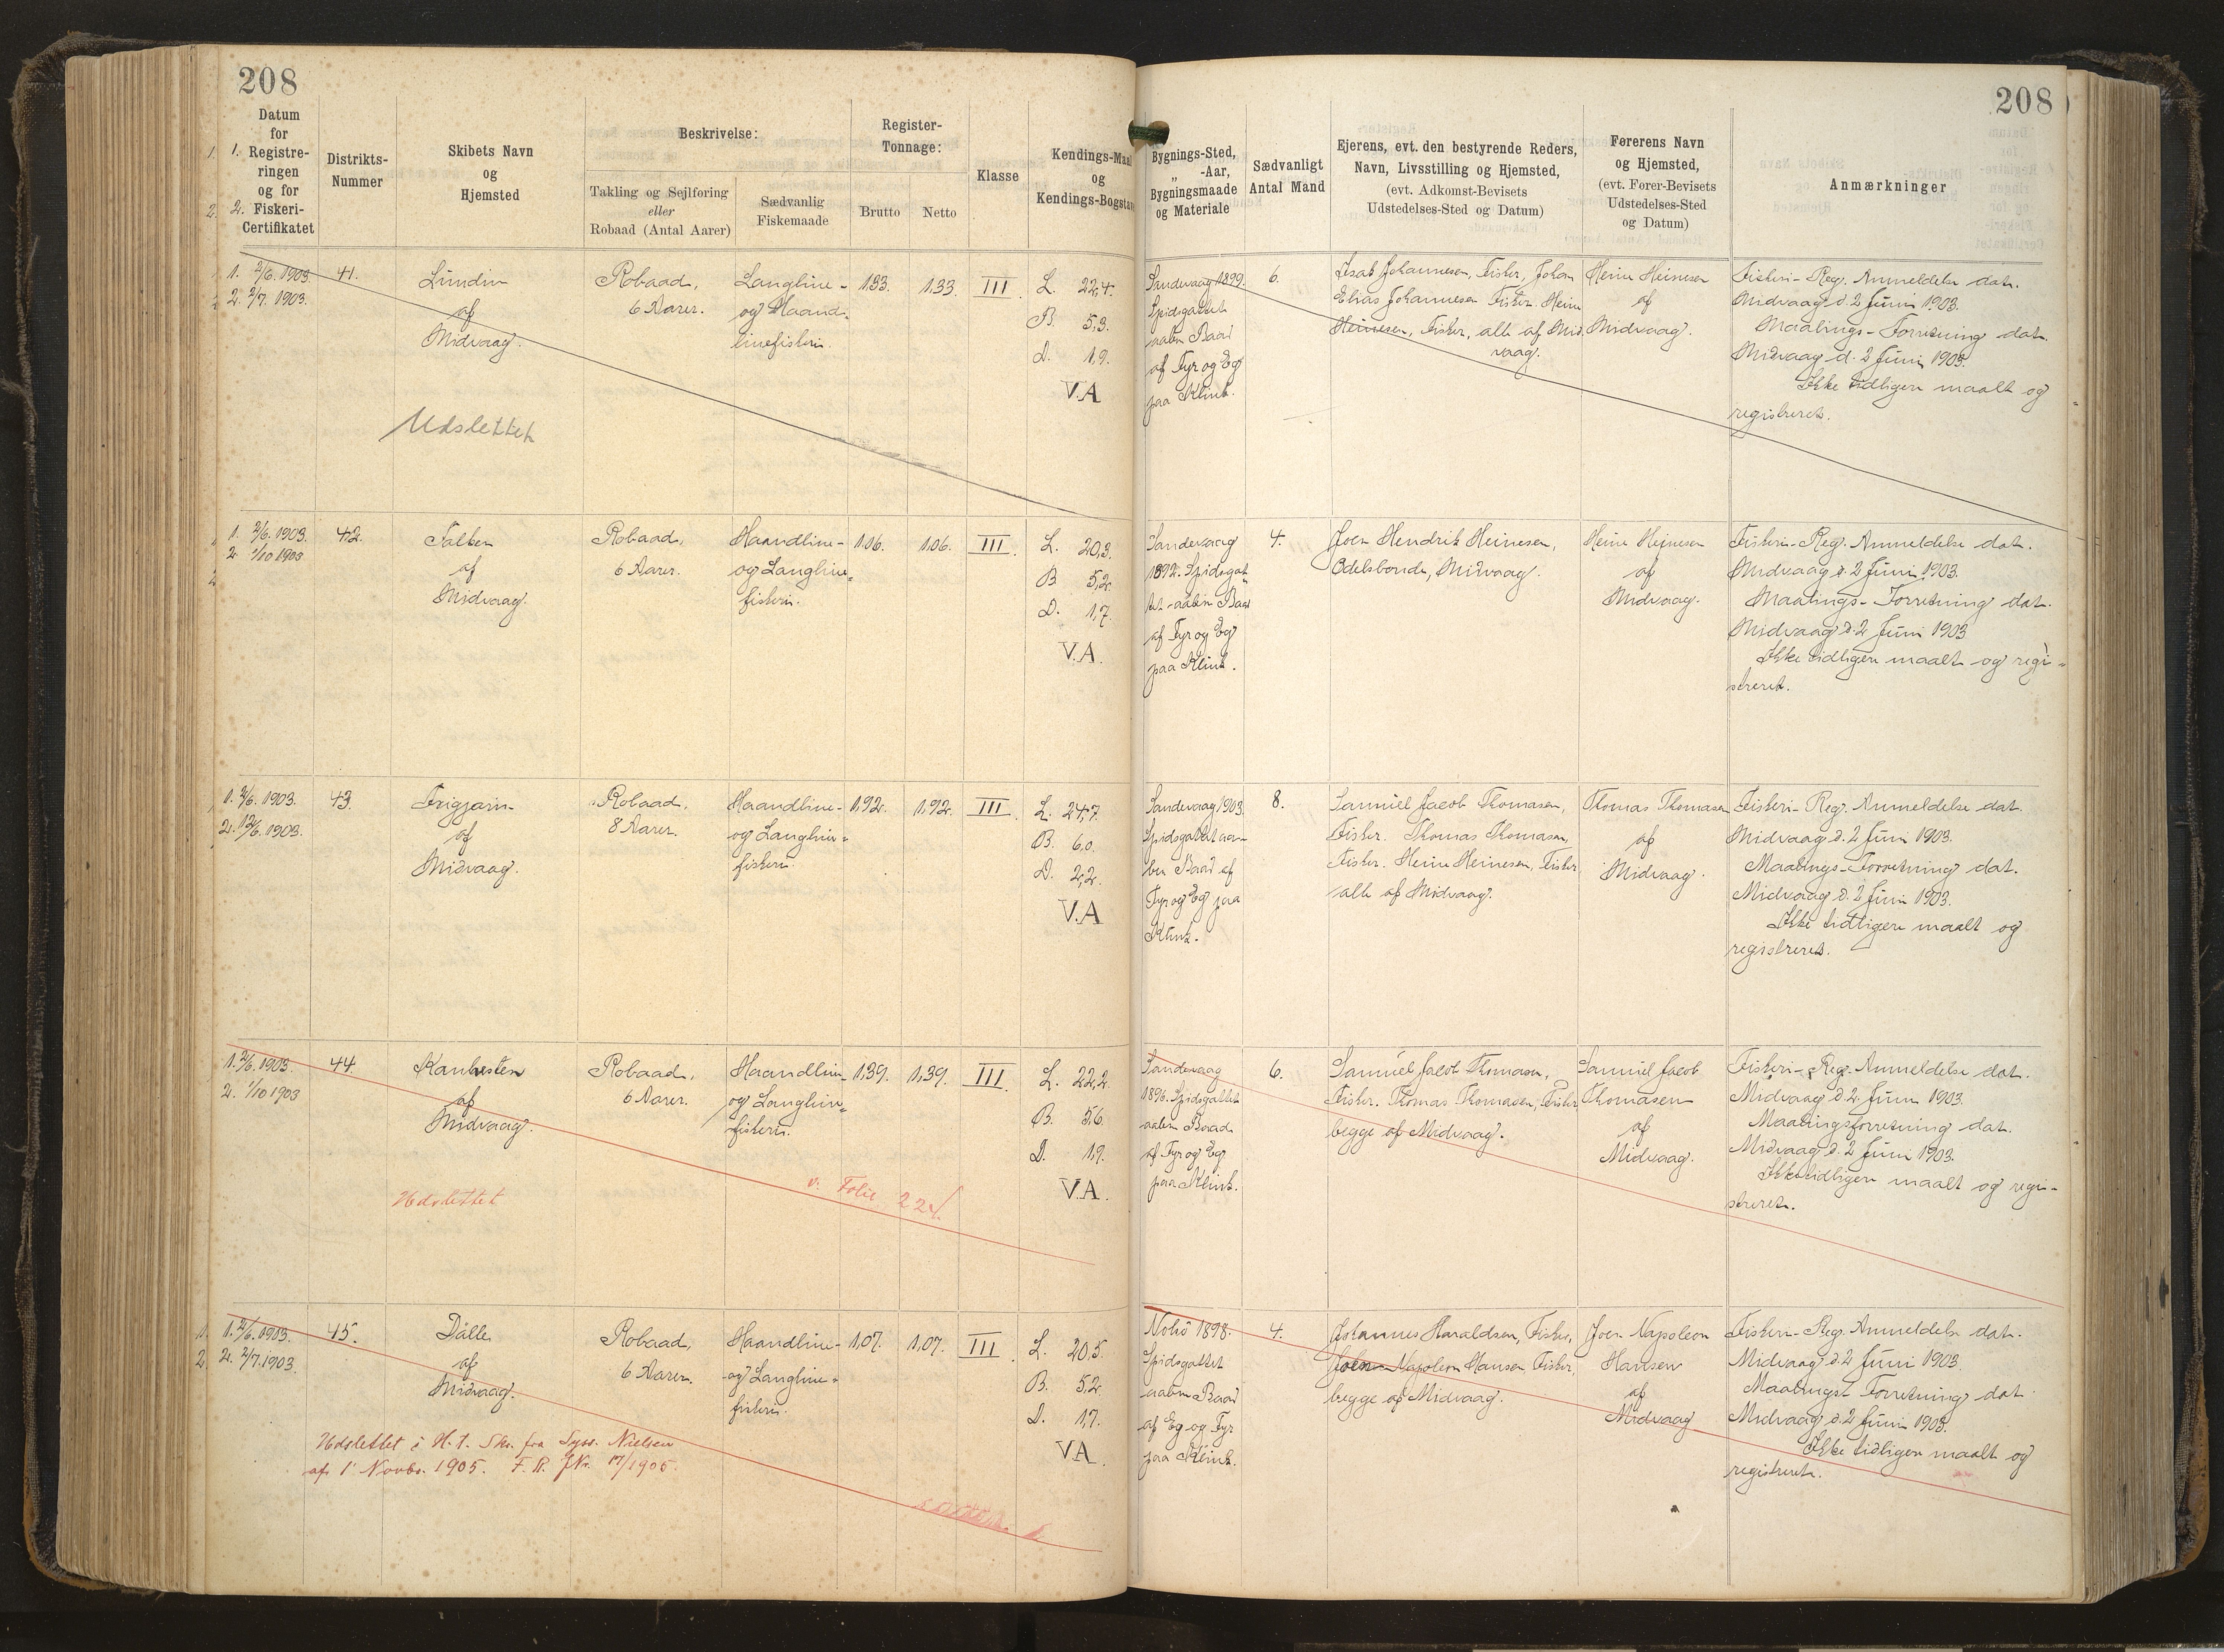 208
208
Datum
for
1. Registre-
ringen
og for
2. Fiskeri-
Certifikatet
Distrikts-
Nummer
Skibets Navn
og
Hjemsted
Beskrivelse:
Takling og Sejlføring
eller
Robaad (Antal Aarer)
Sædvanlig
Fiskemaade
Register-
Tonnage:
Brutto
Netto
Klasse
Kendings-Maal
og
Kendings-Bogstav
Bygnings-Sted,
„ -Aar,
Bygningsmaade
og Materiale
Sædvanligt
Antal Mand
Ejerens, evt. den bestyrende Reders,
Navn, Livsstilling og Hjemsted,
(evt. Adkomst-Bevisets
Udstedelses-Sted og Datum)
Førerens Navn
og Hjemsted,
(evt. Fører-Bevisets
Udstedelses-Sted
og Datum)
Anmærkninger
1. 2/6. 1903.
2. 2/7. 1903.
41.
Lundin
af
Midvaag.
Udslettet
Robaad,
6 Aarer.
Langline-
og Haand-
linefiskeri.
1,33.
1,33
III.
L. 22,4.
B. 5,3.
D. 1,9.
V.A
Sandevaag 1899.
Spidsgattet
aaben Baad
af Fyr og Eg
paa Klink.
6.
Isak Johannesen, Fisker, Johan
Elias Johannesen Fisker. Heine
Heinesen, Fisker, alle af Mid
vaag.
Heine Heinesen
af
Midvaag.
Fiskeri-Reg. Anmeldelse dat.
Midvaag d. 2 Juni 1903.
Maalings-Forretning dat.
Midvaag d. 2 Juni 1903.
Ikke tidligere maalt og
registreret.
1. 2/6. 1903.
2. 1/10 1903
42.
Falken
af
Midvaag.
Robaad,
6 Aarer.
Haandline-
og Langline-
fiskeri.
1,06.
1,06.
III.
L. 20,3.
B 5,2.
D. 1,7.
V.A.
Sandevaag
1892. Spidsgat-
tet aaben Baad
af Fyr og Eg
paa Klink.
4.
Joen Hendrik Heinesen,
Odelsbonde, Midvaag.
Heine Heinesen
af
Midvaag.
Fiskeri-Reg. Anmeldelse dat.
Midvaag d. 2 Juni 1903.
Maalings-Forretning dat.
Midvaag d. 2 Juni 1903
Ikke tidligere maalt og regi-
streret.
1. 2/6. 1903.
2. 12/6. 1903.
43.
Frigjarin
af
Midvaag.
Robaad,
8 Aarer.
Haandline-
og Langline-
fiskeri.
1,92.
1,92.
III.
L. 24,7.
B. 6,0.
D. 2,2.
V.A
Sandevaag 1903.
Spidsgattet aa-
ben Baad af
Fyr og Eg paa
Klink.
8.
Samuel Jacob Thomasen,
Fisker. Thomas Thomasen,
Fisker. Heine Heinesen, Fisker
alle af Midvaag.
Thomas Thomasen
af
Midvaag.
Fiskeri-Reg. Anmeldelse dat.
Midvaag d. 2 Juni 1903.
Maalings-Forretning dat.
Midvaag d. 2 Juni 1903.
Ikke tidligere maalt og
registreret.
1. 2/6. 1903.
2. 1/10 1903
44.
af
Midvaag.
Udslettet
Robaad,
6 Aarer.
Haandline-
og Langline-
fiskeri.
v. Folie 224.
1,39.
1,39.
III.
L. 22,2.
B. 5,6.
D. 1,9.
V.A.
Sandevaag
1896. Spidsgattet
aaben Baad
af Fyr og Eg
paa Klink.
6.
Samuel Jacob Thomasen,
Fisker. Thomas Thomasen, Fisker
begge af Midvaag.
Samuel Jacob
Thomasen
af
Midvaag.
Fiskeri-Reg. Anmeldelse dat.
Midvaag d. 2. Juni 1903.
Maalingsforretning dat.
Midvaag d. 2 Juni 1903.
Ikke tidligere maalt og regi-
streret.
1. 2/6. 1903.
2. 2/7. 1903.
45.
Dalle
af
Midvaag.
Udslettet i H. t. Skr. fra Syss. Nielsen
af 1' Novbr. 1905. F. R. JNr. 17/1905.
Robaad,
6 Aarer.
Haandline-
og Langline-
fiskeri.
1,07.
1,07.
III
L. 20,5.
B. 5,2.
D. 1,7.
V.A.
Nolsö 1898.
Spidsgattet
aaben Baad
af Eg og Fyr
paa Klink.
4.
Johannes Haraldsen, Fisker,
Joen Napoleon Hansen Fisker,
begge af Midvaag.
Joen Napoleon
Hansen
af
Midvaag
Fiskeri-Reg. Anmeldelse dat.
Midvaag d. 2 Juni 1903.
Maalings-Forretning dat.
Midvaag d. 2 Juni 1903.
Ikke tidligere maalt og
registreret.